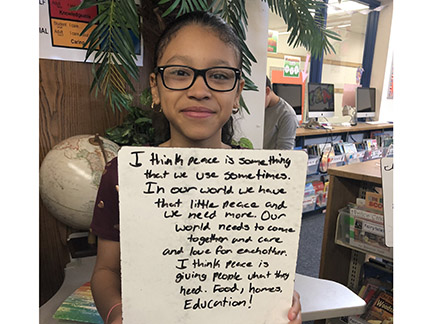 I think peace is something
that we use sometimes.
In our world we have
that little peace and
we need more. Our
world needs to come
together and care
and love for eachother.
I think peace is
giving people what they
need. Food, homes,
Education!